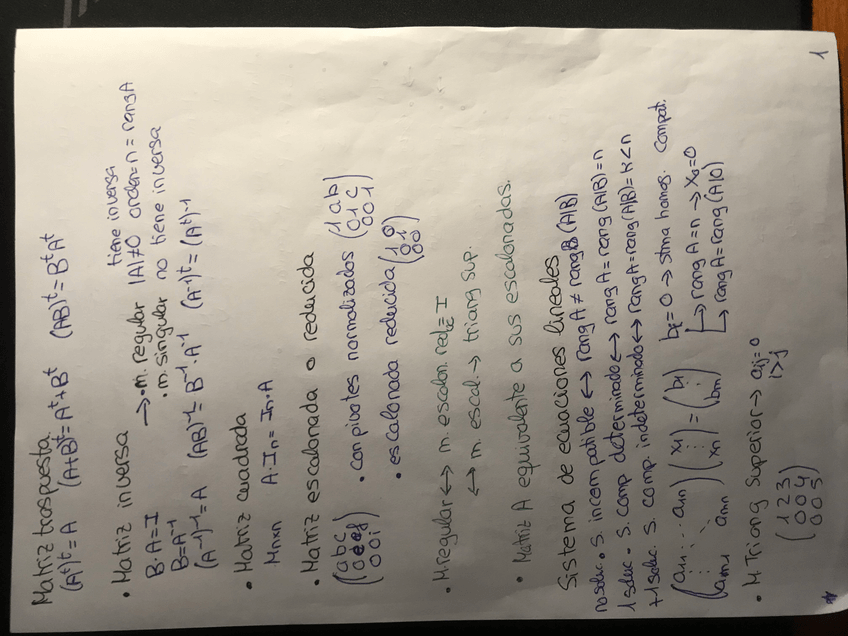 Matriz traspuesta
(Aᵗ)ᵗ = A (A+B)ᵗ = Aᵗ + Bᵗ (AB)ᵗ = BᵗAᵗ
• Matriz inversa → • m. regular |A| ≠ 0 orden = n = rang A tiene inversa
• m. singular no tiene inversa
B·A = I
B = A⁻¹
(A⁻¹)⁻¹ = A (AB)⁻¹ = B⁻¹·A⁻¹ (A⁻¹)ᵗ = (Aᵗ)⁻¹
• Matriz cuadrada
Mnxn A·In = In·A
• Matriz escalonada o reducida
(a b c
0 e f
0 0 i)
• con pivotes normalizados (1 a b
0 1 c
0 0 1)
• escalonada reducida (1 0
0 1
0 0)
• M regular ↔ m. escalon. red. = I
↔ m. escal. → triang sup.
• Matriz A equivalente a sus escalonadas.
Sistema de ecuaciones lineales
no soluc • S. incompatible ↔ rang A ≠ rang (A|B)
1 soluc • S. comp determinado ↔ rang A = rang (A|B) = n
+1 soluc. S. comp. indeterminado ↔ rang A = rang (A|B) = k < n
(a11 ... a1n
⋮ ⋱
am1 amn) (x1
⋮
xn) = (b1
⋮
bm)
bi = 0 → stma homog. compat.
→ rang A = n → x0 = 0
→ rang A = rang (A|0)
• M Triang Superior → aij = 0
i > j
(1 2 3
0 0 4
0 0 5)
1